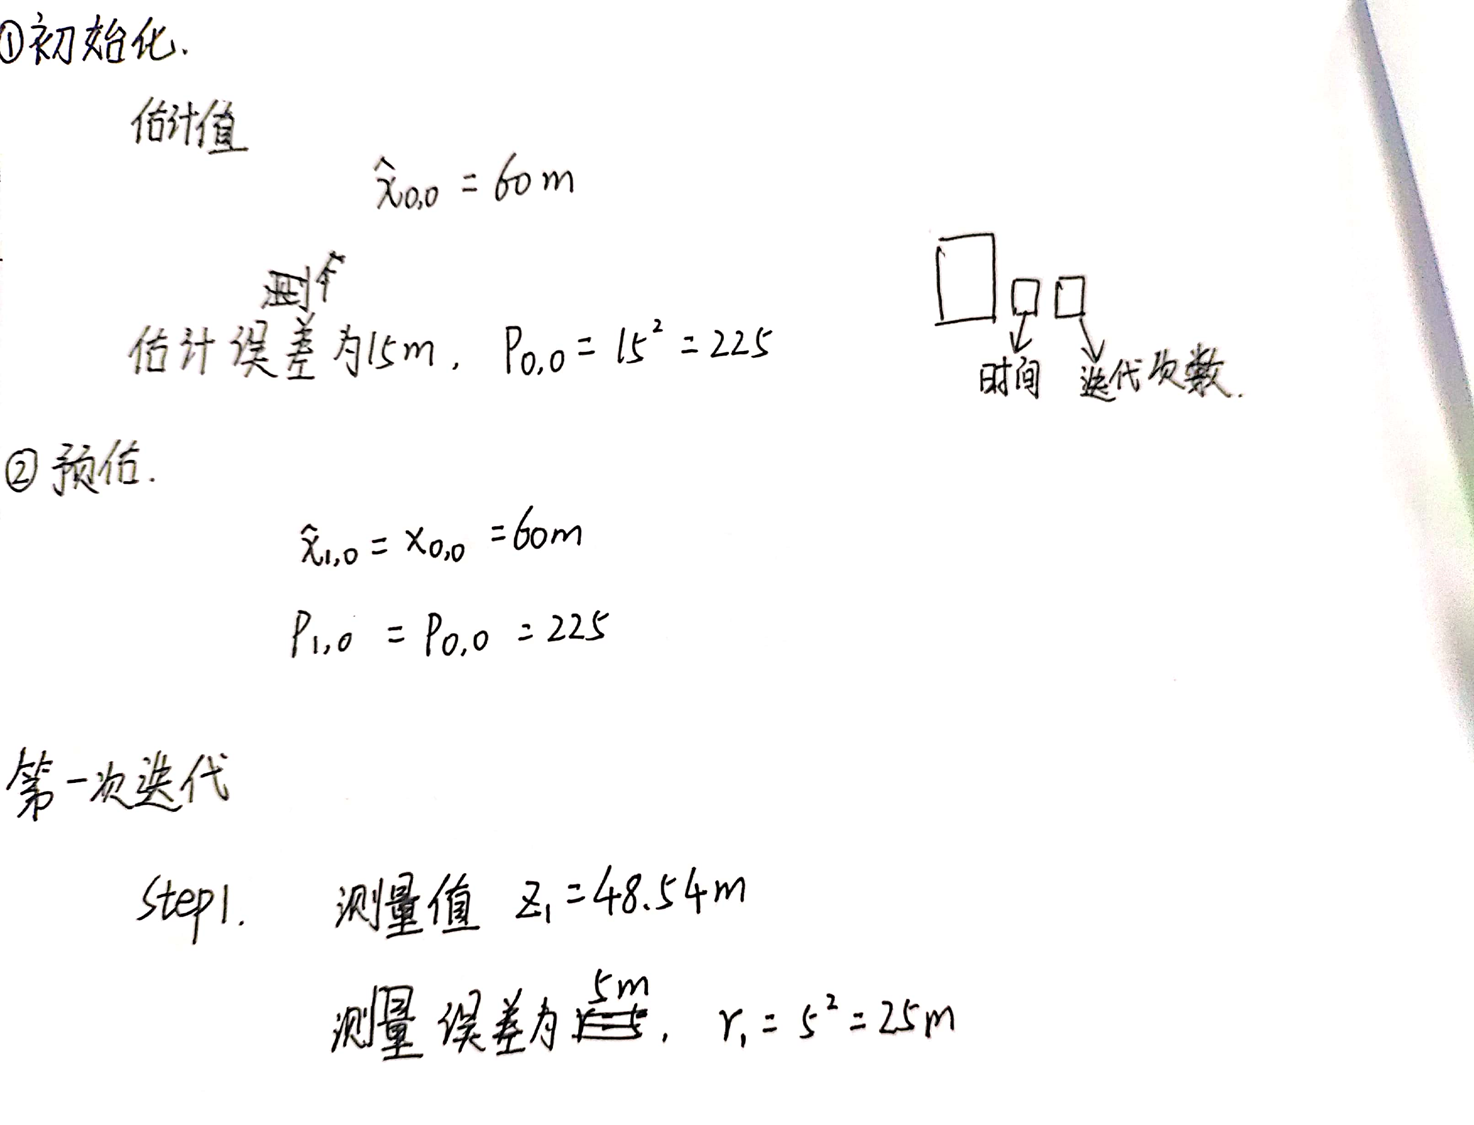 ①初始化.
估计值
x̂₀,₀ = 60m
估计误差为15m, P₀,₀ = 15² = 225
时间 迭代次数.
②预估.
x̂₁,₀ = x₀,₀ = 60m
P₁,₀ = P₀,₀ = 225
第一次迭代
Step1. 测量值 z₁ = 48.54m
测量误差为5m, r₁ = 5² = 25m